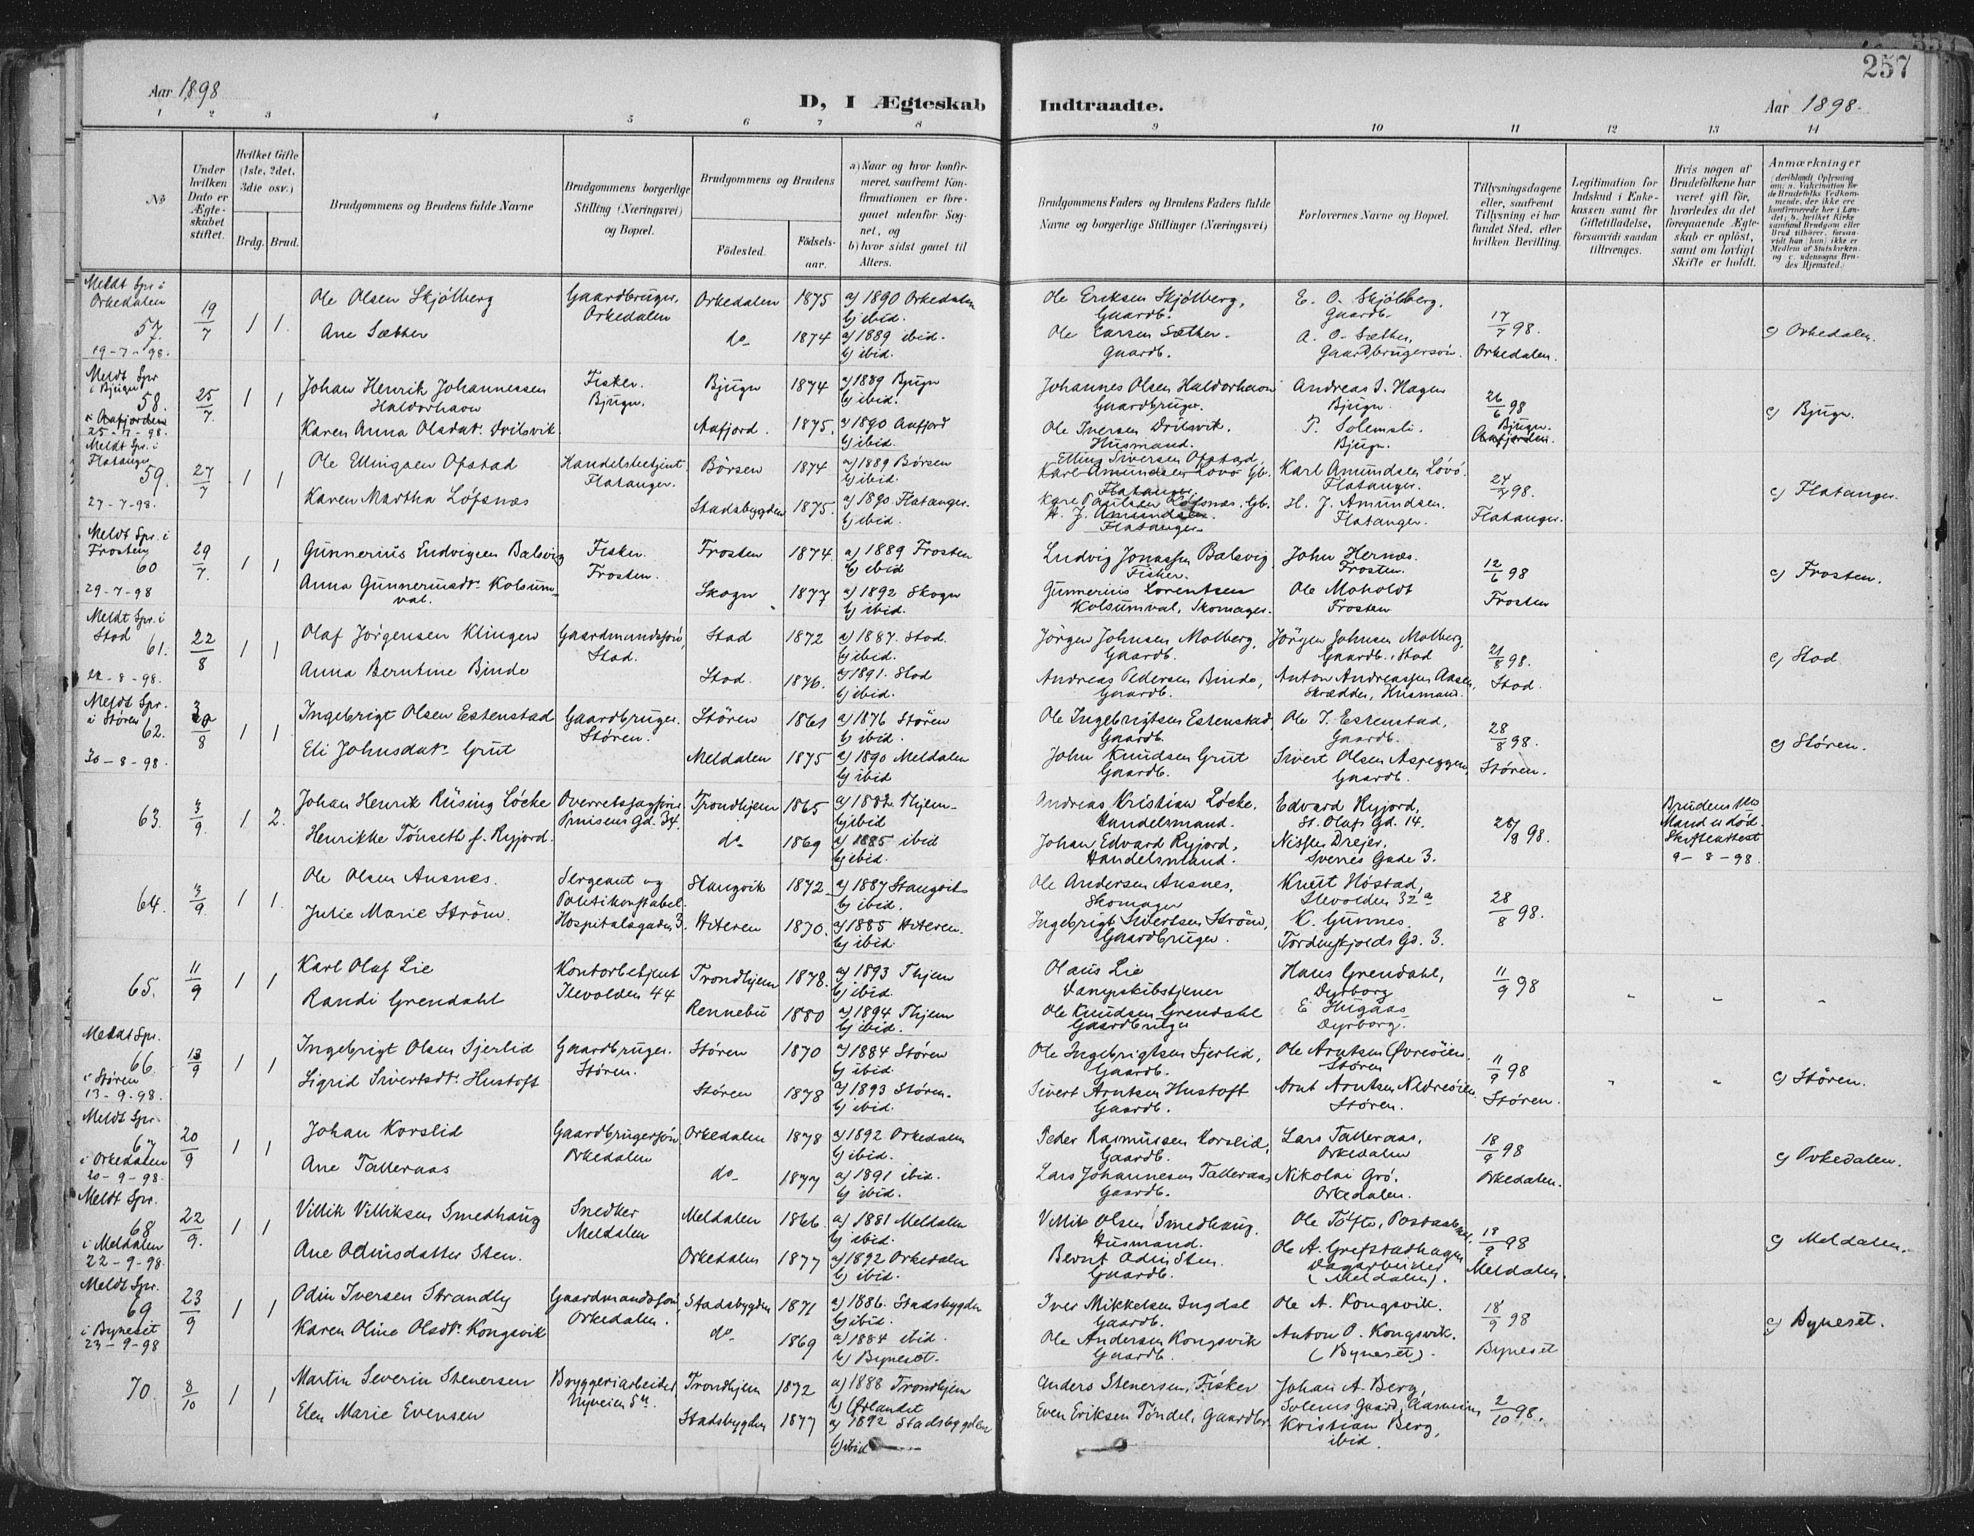 257
Aar 1898
D, I Ægteskab Indtraadte.
Aar 1898.
1 2 3 4 5 6 7 8 9 10 11 12 13 14
No
Under hvilken Dato er Ægteskabet stiftet.
Hvilket Gifte (1ste, 2det, 3die osv.)
Brdg. Brud.
Brudgommens og Brudens fulde Navne
Brudgommens borgerlige Stilling (Næringsvei) og Bopæl.
Brudgommens og Brudens
Födested. Födselsaar.
a) Naar og hvor konfirmeret, saafremt Konfirmationen er foregaaet udenfor Sognet, og
b) hvor sidst gaaet til Alters.
Brudgommens Faders og Brudens Faders fulde Navne og borgerlige Stillinger (Næringsvei)
Forlovernes Navne og Bopæl.
Tillysningsdagene eller, saafremt Tillysning ei har fundet Sted, efter hvilken Bevilling.
Legitimation for Indskud i Enkekassen samt for Giftetilladelse, forsaavidt saadan tiltrænges.
Hvis nogen af Brudefolkene har været gift för, hvorledes da det foregaaende Ægteskab er oplöst, samt om lovligt Skifte er holdt.
Anmærkninger
(deriblandt Oplysning om: a. Vakcination for de Brudefolks Vedkommende, der ikke ere konfirmerede her i Landet; b. hvilket Kirkesamfund Brudgom eller Brud tilhörer, forsaavidt han (hun) ikke er Medlem af Statskirken, og c. udensogns Brudes Hjemsted.)
Meldt Spr. i Orkedalen
57.
19-7-98.
19/7 1 1.
Ole Olsen Skjölberg Gaardbruger, Orkedalen Orkedalen 1875 a) 1890 Orkedalen b) ibid.
Ole Eriksen Skjölberg, Gaardb. E. O. Skjölberg, Gaardb. 17/7 98.
Ane Sæther do 1874 a) 1889 ibid. b) ibid.
Ole Larsen Sæther. Gaardb. A. O. Sæther, Gaardbrugersön. Orkedalen.
c) Orkedalen.
Meldt Spr i Bjugn
58.
i Aafjorden
25-7-98.
25/7. 1 1
Johan Henrik Johannessen Haldorhavn Fisker. Bjugn. Bjugn 1874 a) 1889 Bjugn b) ibid.
Johannes Olsen Haldorhavn Gaardbruger. Andreas J. Hagen Bjugn. 26/6 98
Karen Anna Olsdat. Drilsvik Aafjord. 1875. a) 1890 Aafjord b) ibid.
Ole Iversen Drilsvik. Husmand. P. Solemsli. Bjugn. Bjugn. Aafjorden.
c) Bjugn.
Meldt Spr. i Flatanger
59.
27-7-98.
27/7 1 1
Ole Ellingsen Ofstad Handelsbetjent. Flatanger. Börsen 1874 a) 1889 Börsen b) ibid.
Elling Siversen Ofstad, Karl Amundsen Lövö Gb. Flatanger Karl Amundsen Lövö. Flatanger. 24/7 98.
Karen Martha Löfsnæs Stadsbygden 1875. a) 1890 Flatanger. b) ibid.
H. J. Amundsen. Flatanger H. J. Amundsen. Flatanger. Flatanger.
c) Flatanger.
Meldt Spr. i Frosten
60
29-7-98
29/7. 1 1
Gunnerius Ludvigsen Balsvig Fisker. Frosten. Frosten 1874. a) 1889 Frosten b) ibid
Ludvig Jonassen Balsvig, Fisker. John Hernæs. Frosten. 12/6 98
Anna Gunneriusdt. Kolsumval. Skogn 1877 a) 1892 Skogn b) ibid.
Gunnerius Lorentsen Kolsumval, Skomager. Ole Moholdt Frosten Frosten
c) Frosten.
Meldt Spr. i Stod
61.
22-8-98.
22/8 1 1
Olaf Jörgensen Klingen Gaardmandssön, Stod. Stod 1872 a) 1887. Stod. b) ibid.
Jörgen Johnsen Molberg, Gaardb. Jörgen Johnsen Molberg, Gaardb. Stod 21/8 98.
Anna Berntine Binde Stod. 1876. a) 1891. Stod b) ibid.
Andreas Pedersen Binde, Gaardb. Anton Andreassen Aasen, Skrædder, Husmand. Stod.
c) Stod.
Meldt Spr. i Stören
62.
30-8-98.
30/8 1 1
Ingebrigt Olsen Estenstad Gaardbruger. Stören. Stören 1861 a) 1876 Stören b) ibid.
Ole Ingebrigtsen Estenstad, Gaardb. Ole I. Estenstad, Gaardb. 28/8 98.
Eli Johnsdat. Grut Meldalen 1875 a) 1890 Meldalen b) ibid
John Knudsen Grut Gaardb. Sivert Olsen Aspeggen, Gaardb. Stören.
c) Stören.
63. 4/9. 1 2.
Johan Henrik Rüsing Löcke Overretssagförer Prinsens Gd. 34. Trondhjem 1865 a) 1882. Thjem b) ibid
Andreas Kristian Löcke. Handelsmand. Edvard Ryjord, St. Olafs Gd. 14. 28/8 98.
Henrikke Tönseth f. Ryjord. do 1869 a) 1885 ibid b) ibid.
Johan Edvard Ryjord, Handelsmand. Nissen Drejer, Svenes Gade 3.
Brudens Mand er död. Skifteattest 9-8-98.
64. 4/9. 1 1.
Ole Olsen Ansnes. Sergeant og Politikonstabel. Hospitalsgaden 3. Stangvik 1872 a) 1887 Stangvik b) ibid.
Ole Andersen Ansnes, Skomager Knut Höstad, Ilevolden 32a 28/8 98.
Julie Marie Ström. Hiteren 1870. a) 1885 Hiteren. b) ibid.
Ingebrigt Sivertsen Ström, Gaardbruger. K. Gunnes. Tordenskjolds Gd. 3.
65. 11/9 1 1
Karl Olaf Lie Kontorbetjent Ilevolden 44 Trondhjem 1878. a) 1893 Thjem b) ibid.
Olaus Lie Dampskibstjener Hans Grendahl, Dyrborg 11/9 98
Randi Grendahl Rennebu 1880 a) 1894 Thjem b) ibid.
Ole Knudsen Grendahl Gaardbruger E Hugaas Dyrborg.
" " "
Meldt Spr.
66.
i Stören
13-9-98.
13/9 1 1
Ingebrigt Olsen Sjerlid Gaardbruger. Stören. Stören 1870 a) 1884 Stören b) ibid.
Ole Ingebrigtsen Sjerlid, Gaardb. Ole Arntsen Övreöien. Stören 11/9 98
Sigrid Sivertsdt. Hustoft Stören 1878 a) 1893 Stören. b) ibid.
Sivert Arntsen Hustoft Gaardb. Arnt Arntsen Nedreöien Stören. Stören.
" " c) Stören.
Meldt Spr.
67
i Orkedalen
20-9-98.
20/9 1 1
Johan Korslid Gaardbrugersön Orkedalen Orkedalen 1878 a) 1892 Orkedalen b) ibid.
Peder Rasmussen Korslid, Gaardb. Lars Talleraas, Orkedalen 18/9 98
Ane Talleraas do 1877 a) 1891 ibid. b) ibid.
Lars Johannesen Talleraas Gaardb. Nikolai Grö. Orkedalen. Orkedalen.
c) Orkedalen.
Meldt Spr.
68
i Meldalen
22-9-98.
22/9. 1 1
Villik Villiksen Smedhaug Snedker Meldalen Meldalen 1866. a) 1881 Meldalen b) ibid.
Villik Olsen Smedhaug. Husmand. Ole Töfte, 18/9 98
Ane Odinsdatter Sten. Orkedalen 1877 a) 1892 Orkedalen b) ibid.
Bernt Odin Sten. Gaardb. Ole A. Grefstadhagen Dagarbeider (Meldalen). Meldalen.
c) Meldalen.
Meldt Spr.
69
i Bynesæt
23-9-98
23/9 1 1
Odin Iversen Strandby Gaardmandssön, Orkedalen. Stadsbygden 1871 a) 1886. Stadsbygden b) ibid.
Iver Mikkelsen Ingdal Gaardb. Ole A. Kongsvik. 18/9 98
Karen Oline Olsdt. Kongsvik do 1869 a) 1884 ibid. b) Byneset.
Ole Andersen Kongsvik Gaardb. Anton O. Kongsvik. (Byneset). Byneset
c) Byneset.
70. 8/10 1 1
Martin Severin Stenersen Bryggeriarbeider, Nyveien 5 Trondhjem 1872 a) 1888 Trondhjem b) Örlandet
Anders Stenersen, Fisker Johan A. Berg, Solems Gaard, 2/10 98.
Elen Marie Evensen Stadsbygden 1877 a) 1892 Stadsbygden b) ibid
Even Eriksen Töndel, Gaardbr. Kristian Berg, ibid.